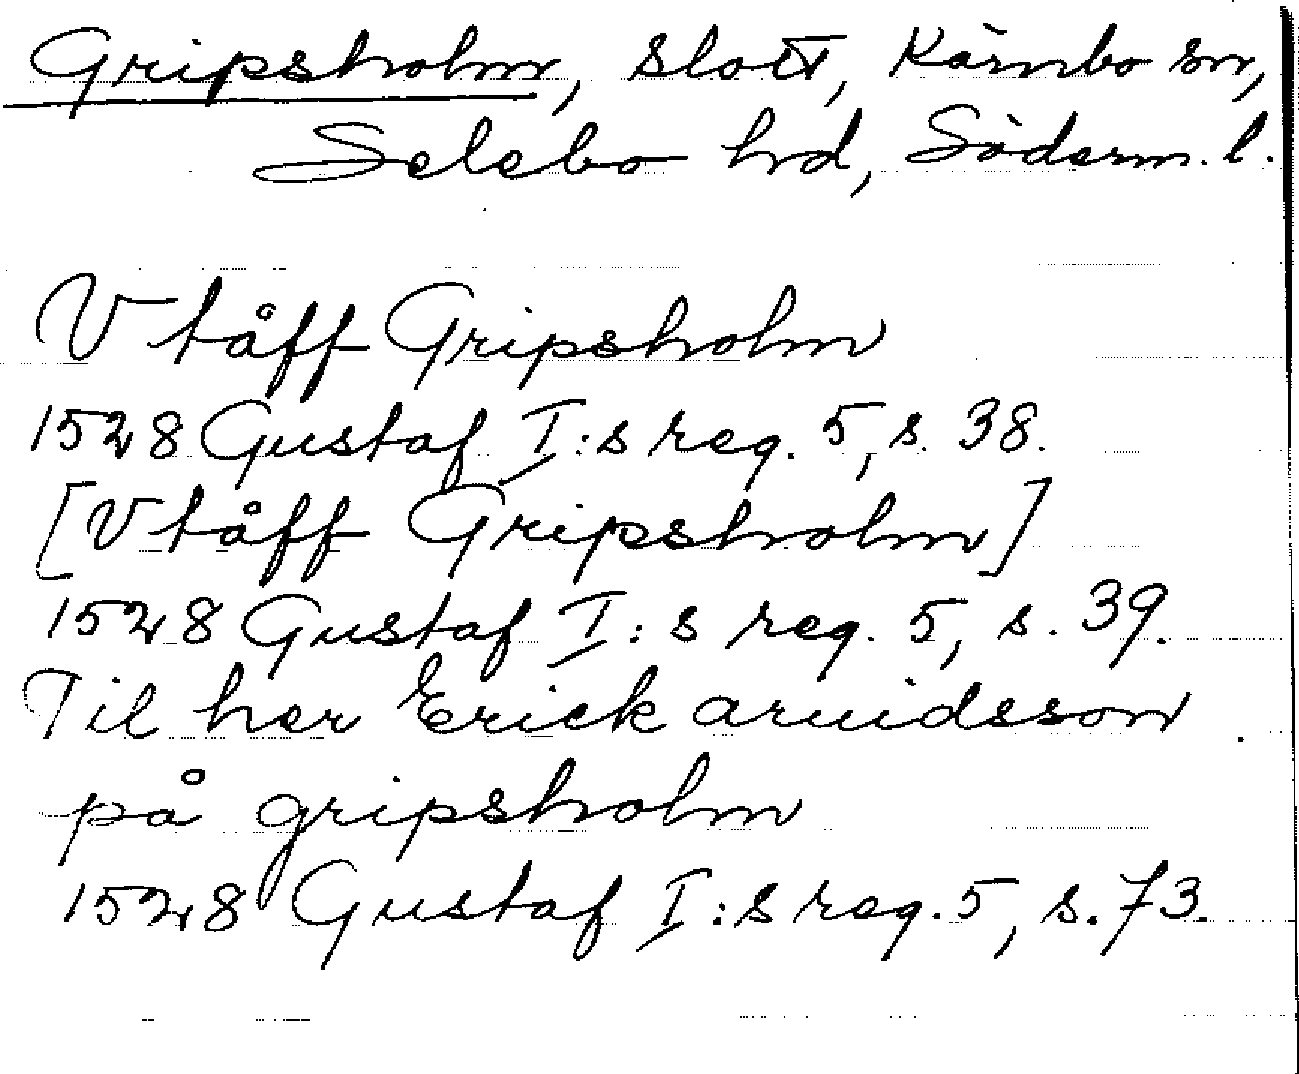 Gripsholm, slott, Kärnbo sn,
Selebo hd, Söderm. l.
Vtåff Gripsholm
1528 Gustaf I:s reg. 5, s. 38.
[Vtåff Gripsholm]
1528 Gustaf I:s reg. 5, s. 39.
Til her Erick aruidsson
på gripsholm
1528 Gustaf I:s reg. 5, s. 73.